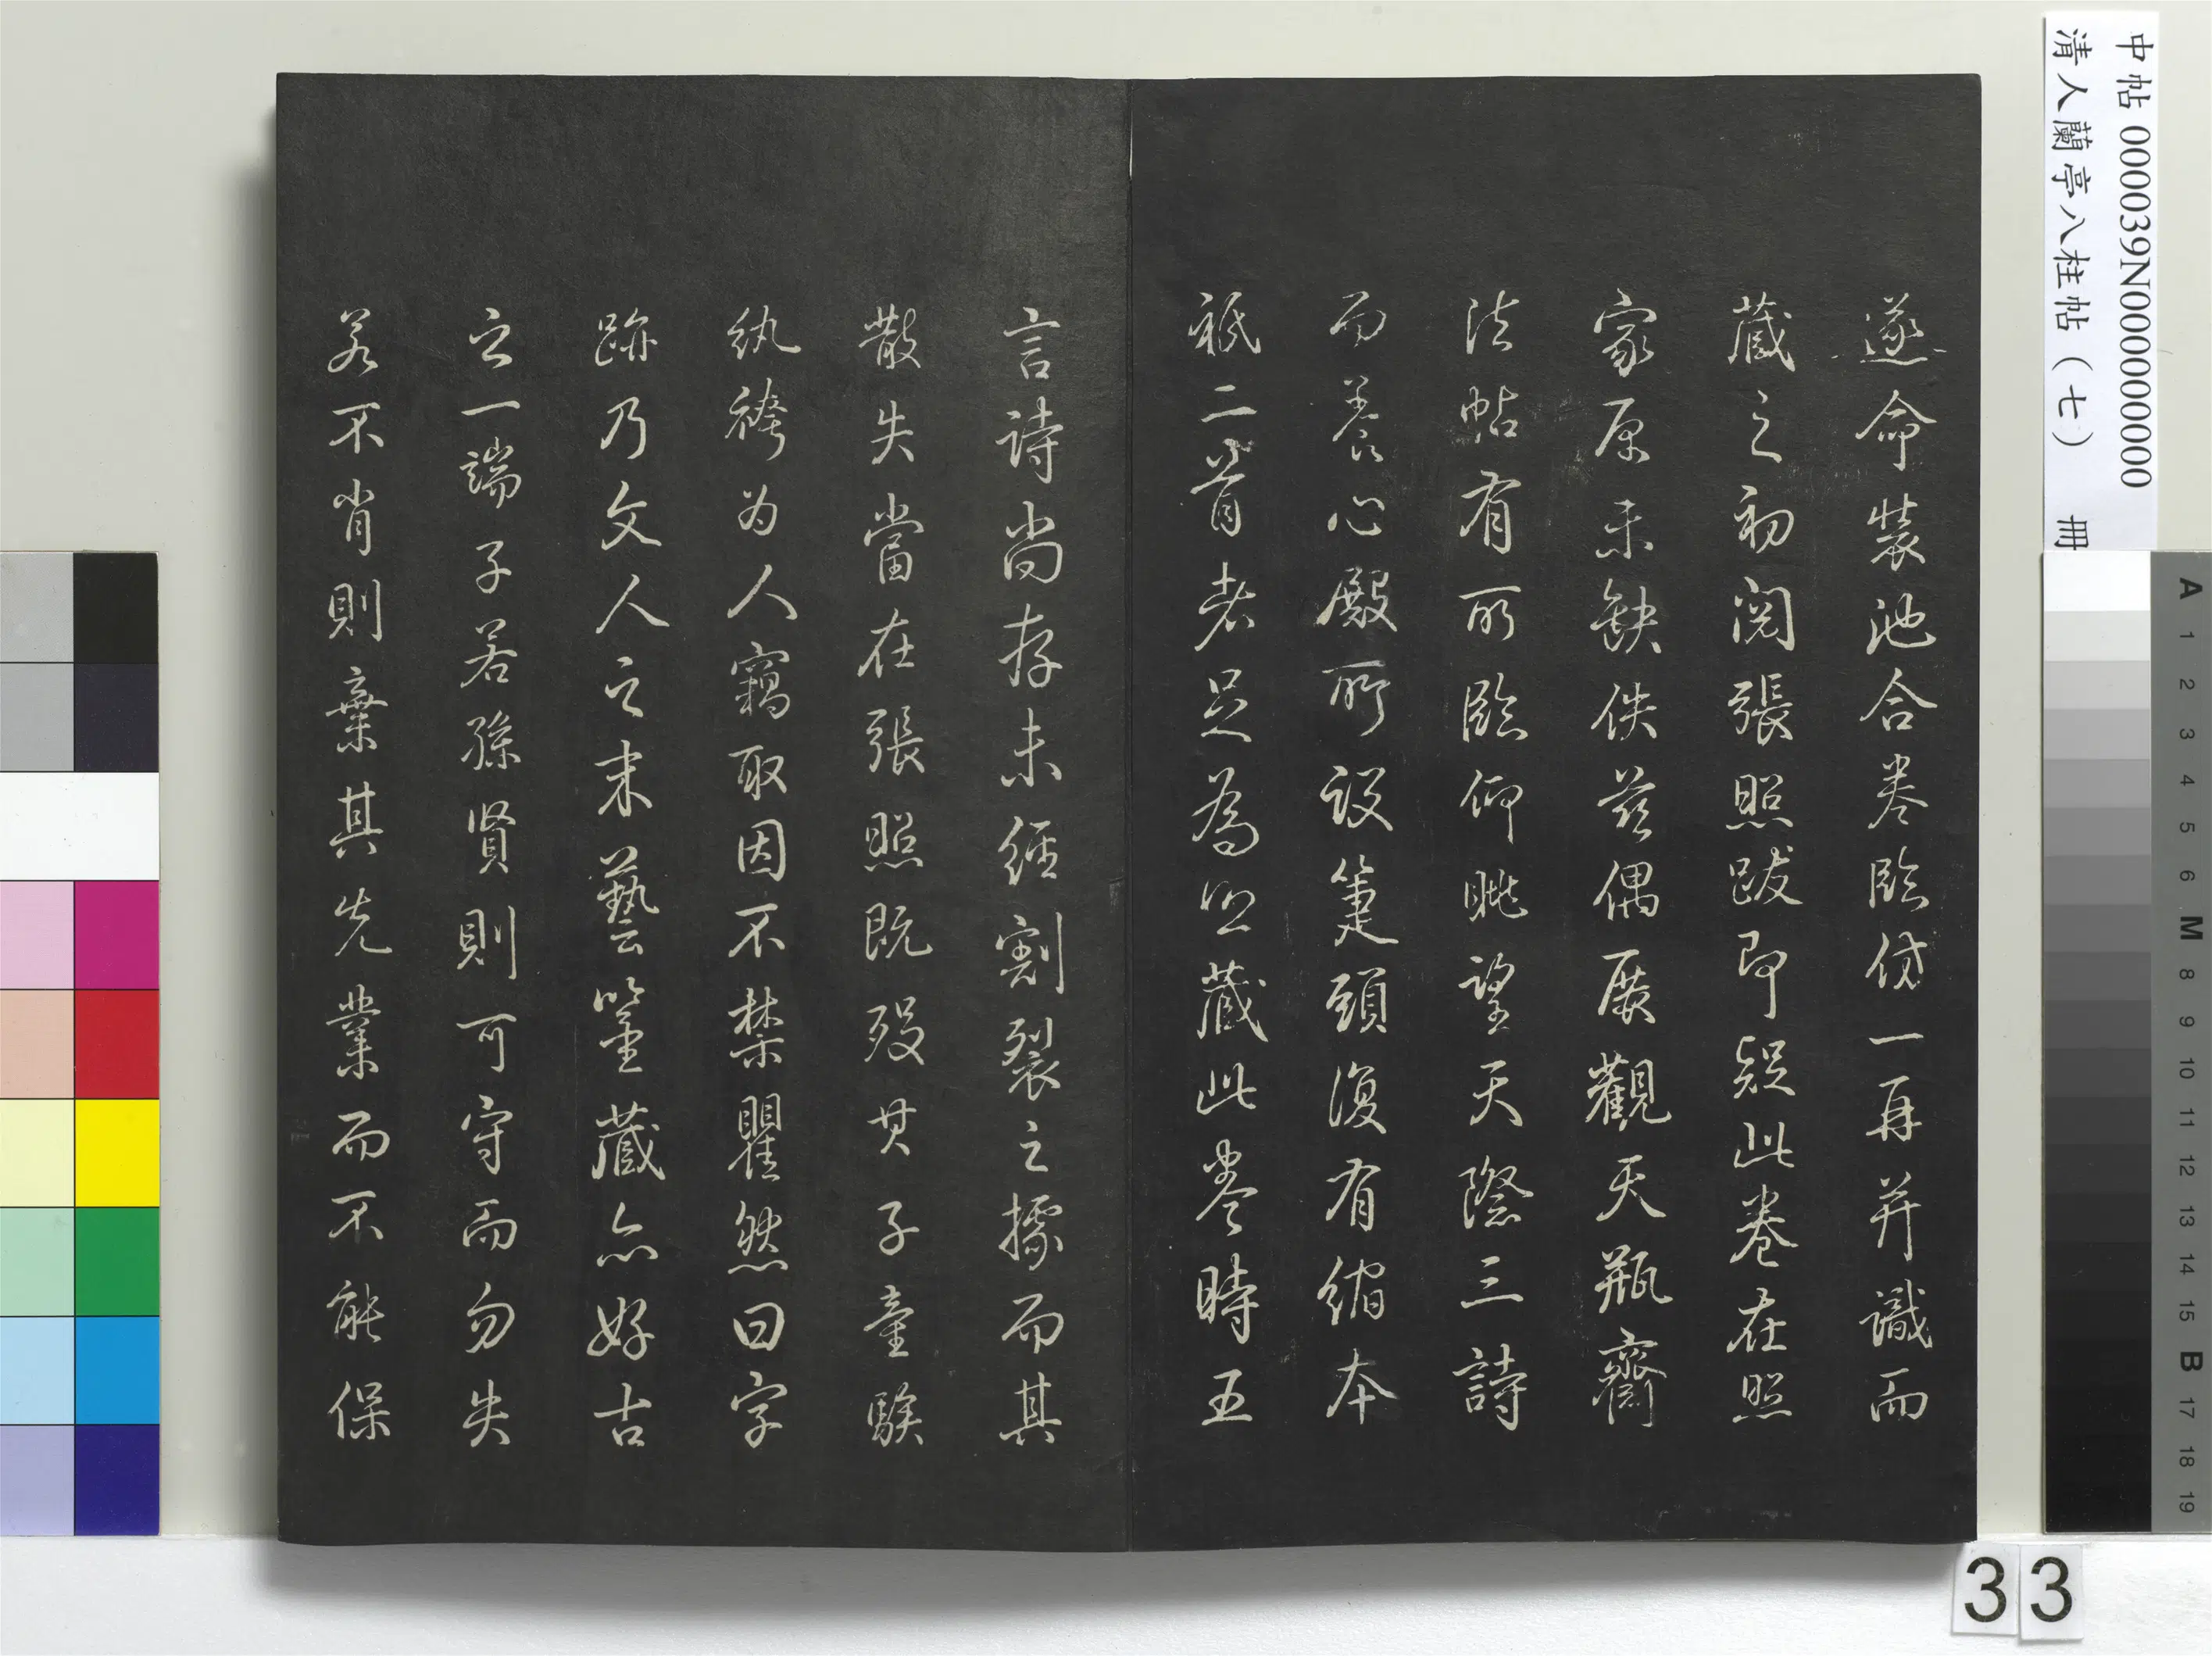 遂命裝池合卷臨仿一再并識而
藏之初閱張照跋即疑此卷在照
家原未缺佚茲偶展觀天瓶齋
法帖有所臨仰眺望天際三詩
而養心殿所設箑頭復有縮本
祇二首者足為照藏此卷時五
言詩尚存未經割裂之據而其
散失當在張照既歿其子童騃
紈袴为人竊取因不禁瞿然曰字
跡乃文人之末藝鑒藏亦好古
之一端子若孫賢則可守而勿失
若不肖則棄其先業而不能保
中帖 000039N000000000
清人蘭亭八柱帖（七） 冊
A 1 2 3 4 5 6 M 8 9 10 11 12 13 14 15 B 17 18 19
33